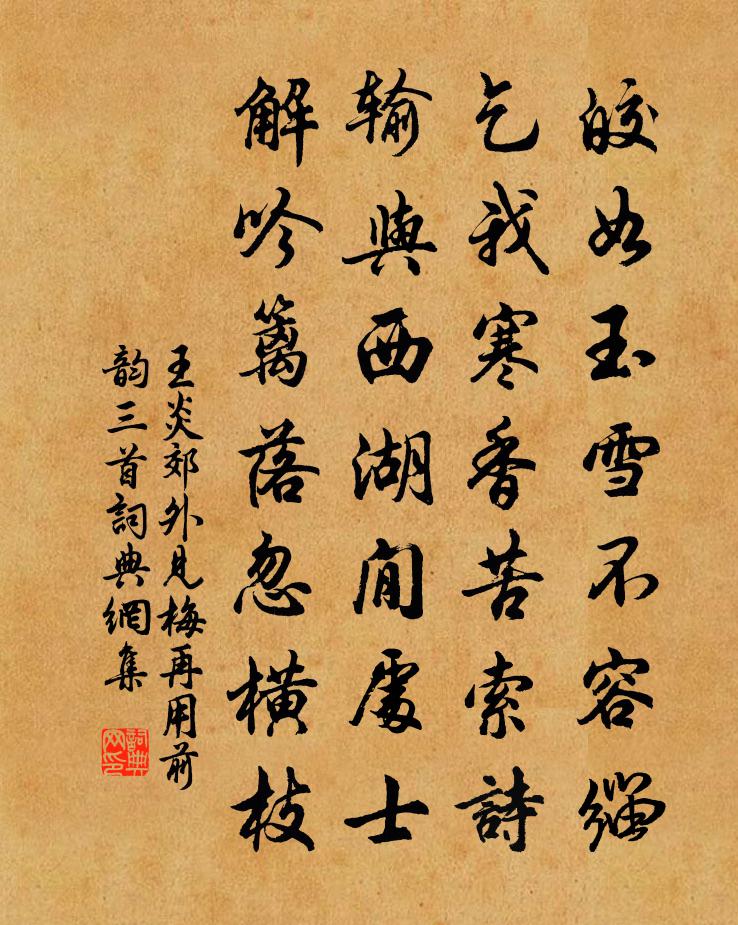 皎如玉雪不容缁
乞我寒香苦索詩
输與西湖閒處士
解吟篱落忽横枝
王炎郊外見梅再用前
韵三首詞典網集
詞典網印